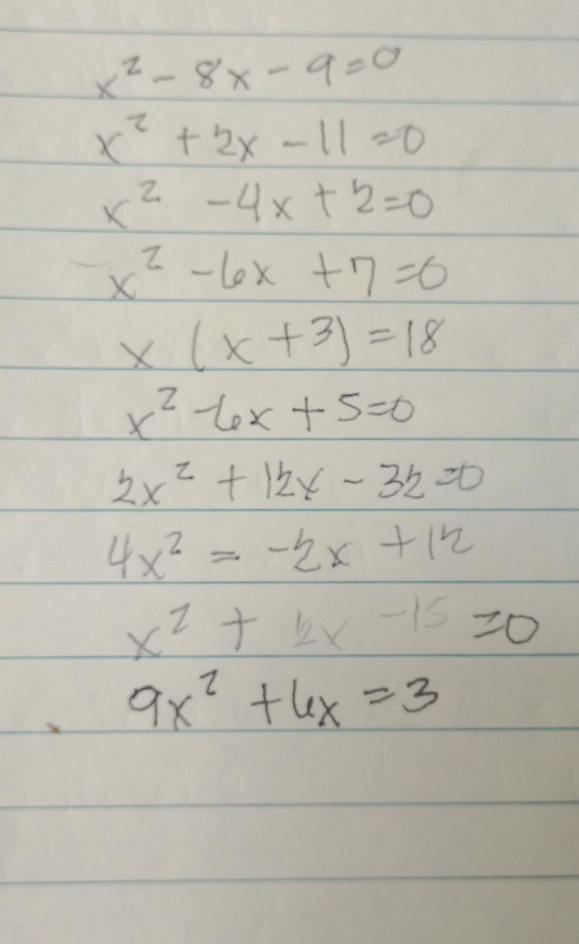 x² - 8x - 9 = 0
x² + 2x - 11 = 0
x² - 4x + 2 = 0
x² - 6x + 7 = 0
x (x + 3) = 18
x² - 6x + 5 = 0
2x² + 12x - 32 = 0
4x² = -2x + 12
x² + 2x - 15 = 0
9x² + 6x = 3